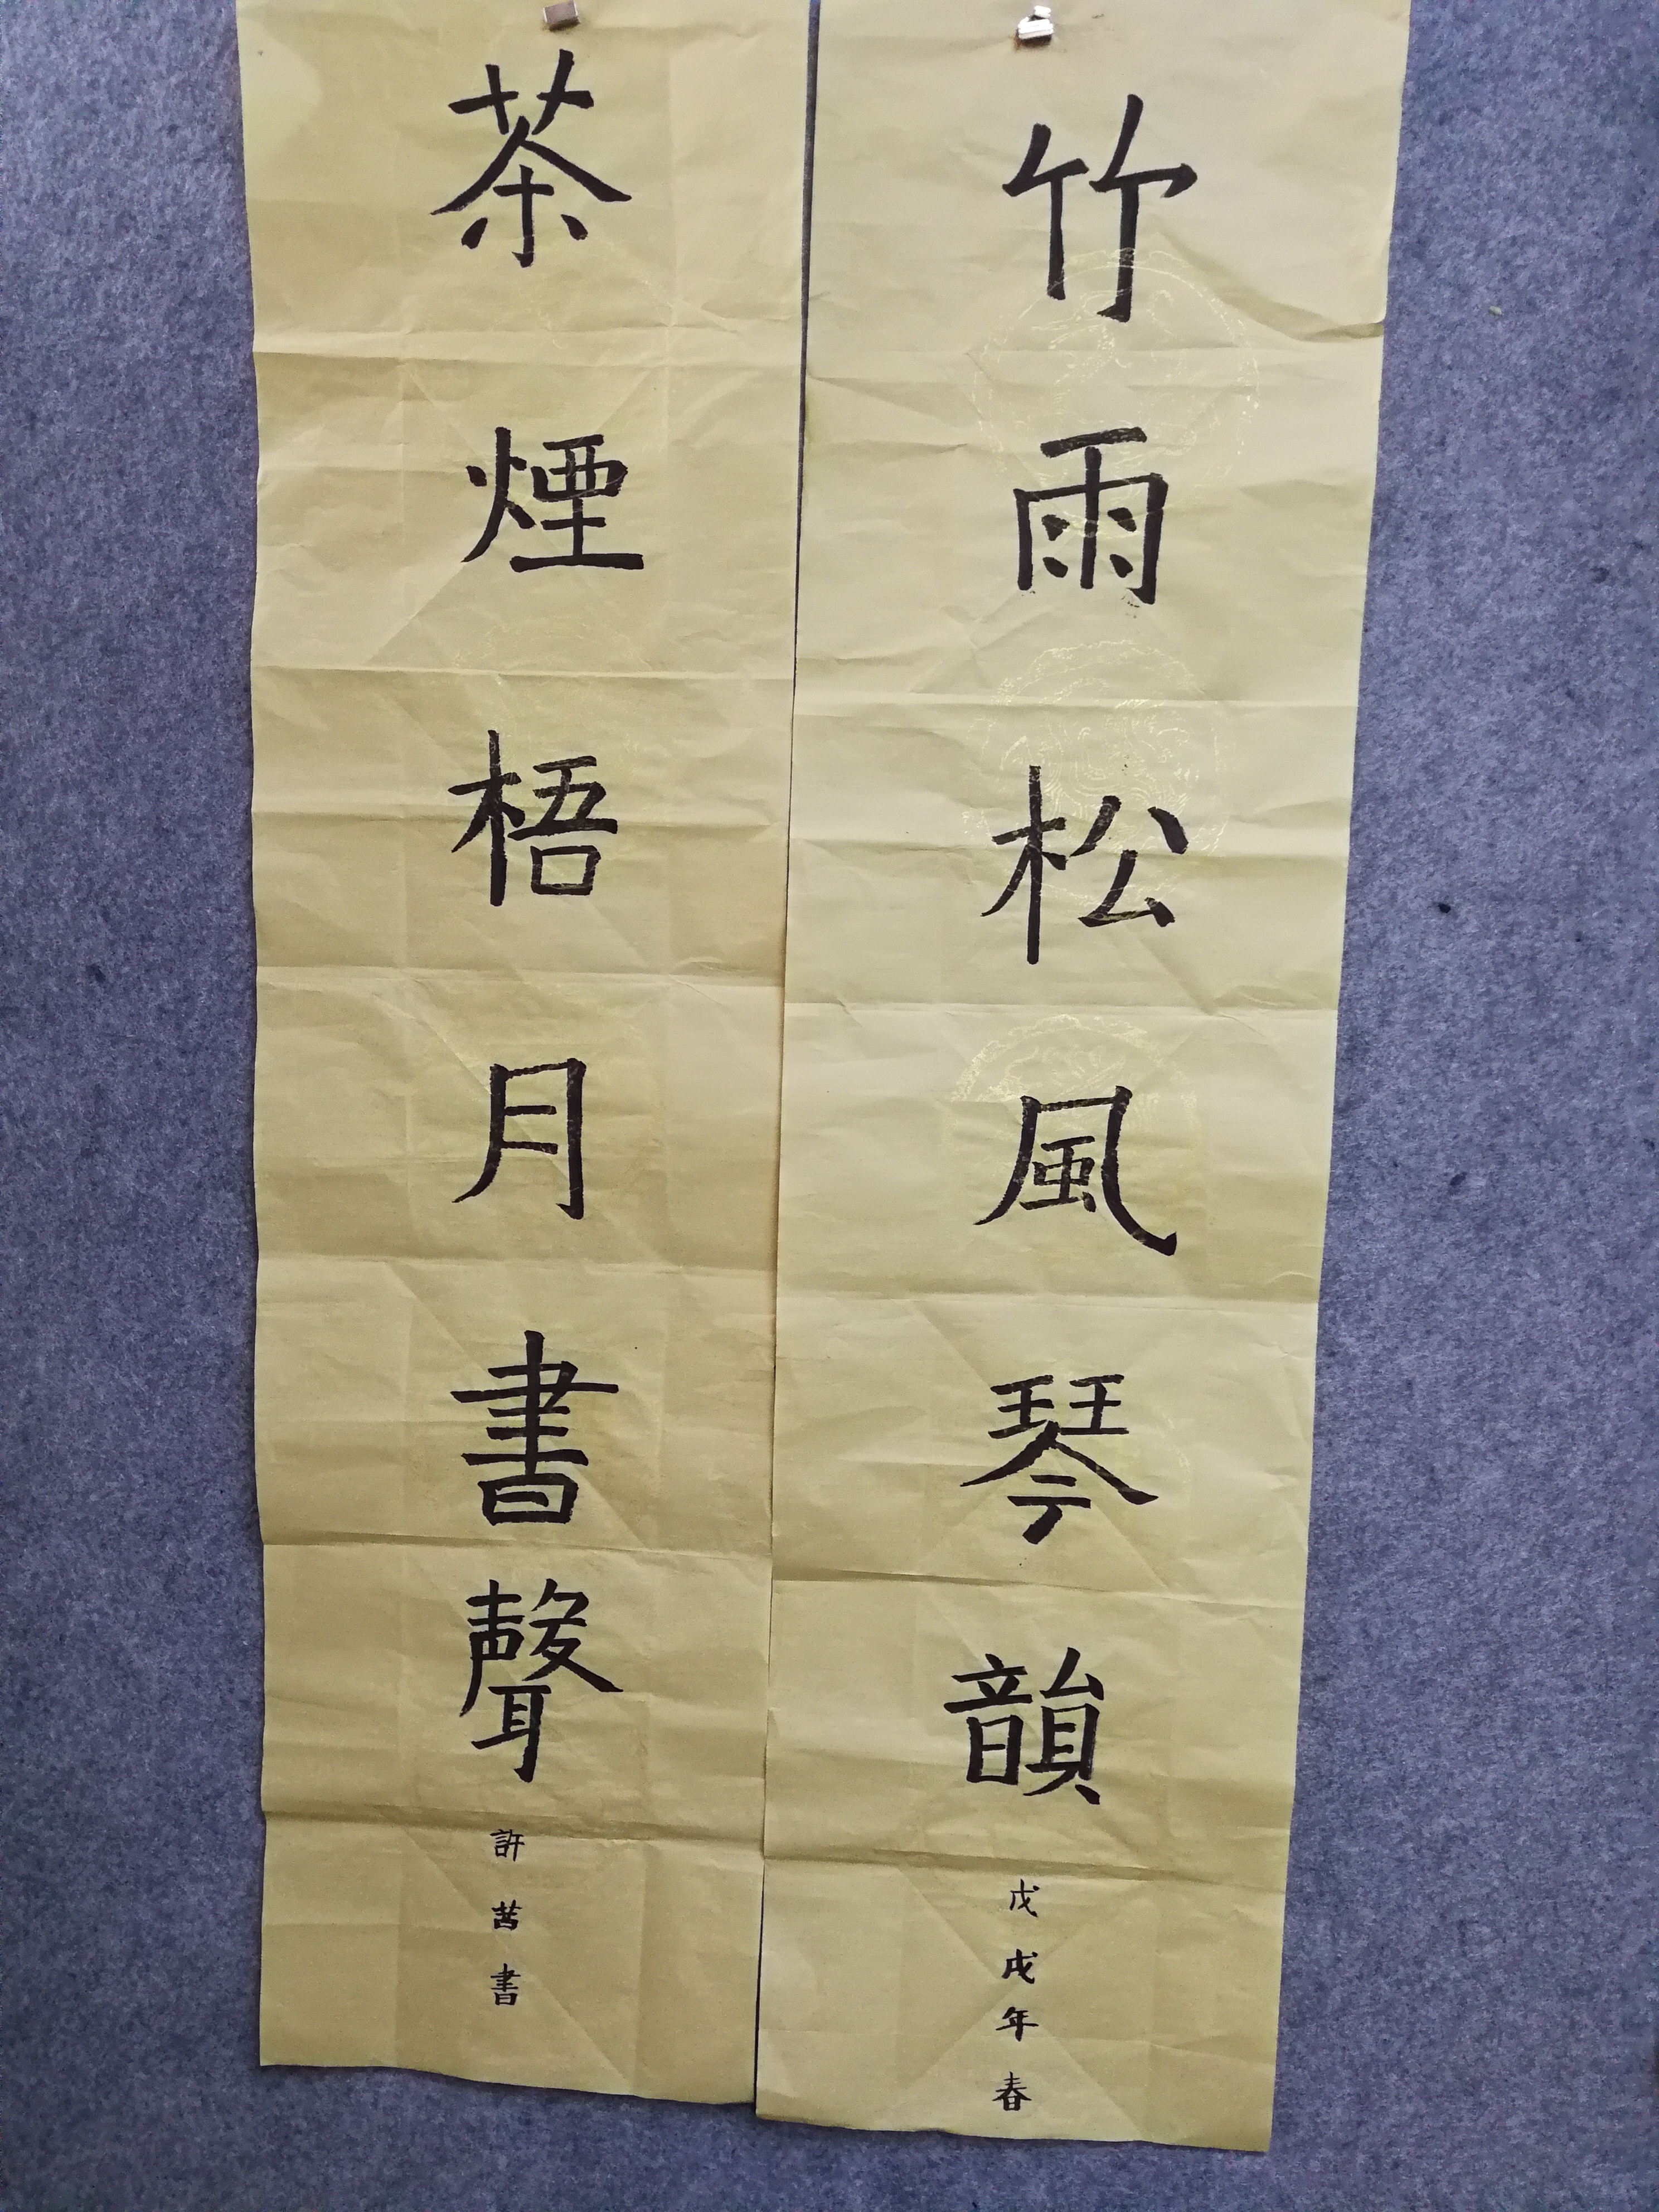 竹雨松風琴韻
戊戌年春
茶煙梧月書聲
許苦書